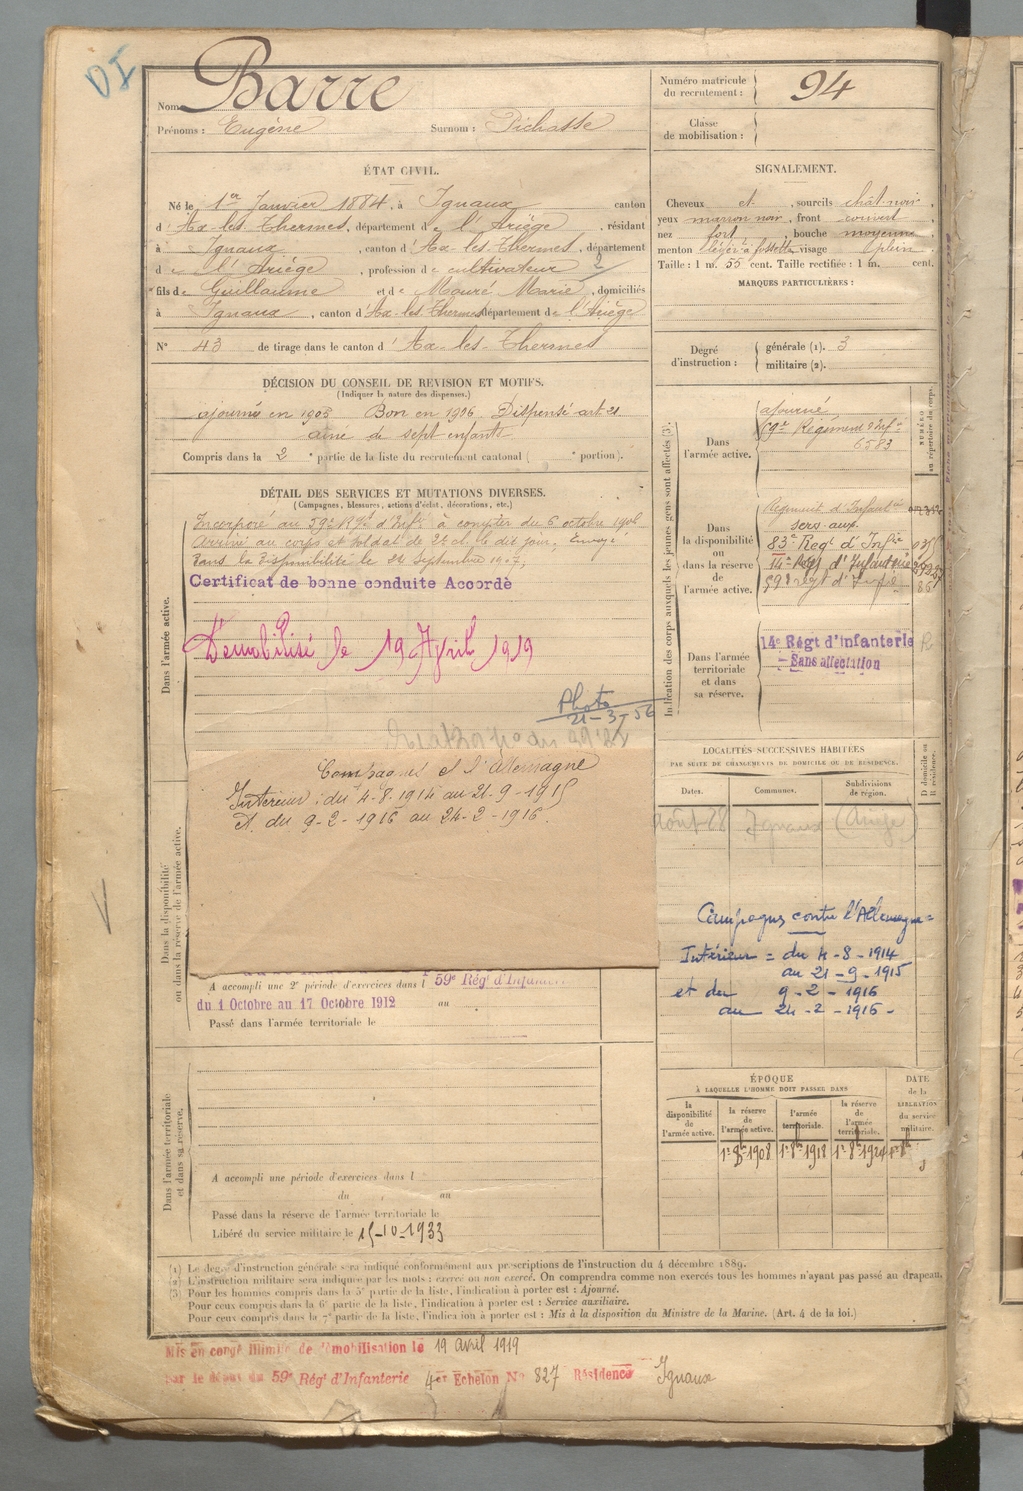 DI
Nom Barre
Prénoms : Eugène Surnom : Pichasse
Numéro matricule du recrutement : 94
Classe de mobilisation :
ÉTAT CIVIL.
Né le 1er Janvier 1884, à Ignaux canton
d'Ax-les-Thermes, département de l'Ariège, résidant
à Ignaux, canton d'Ax-les-Thermes, département
de l'Ariège, profession de cultivateur 2
fils de Guillaume et de Mauré Marie, domiciliés
à Ignaux, canton d'Ax-les-Thermes département de l'Ariège
N° 43 de tirage dans le canton d'Ax-les-Thermes
SIGNALEMENT.
Cheveux et , sourcils chât-noir
yeux marron noir, front couvert
nez fort, bouche moyenne
menton léger à fossette visage plein
Taille : 1 m. 55 cent. Taille rectifiée : 1 m. cent.
MARQUES PARTICULIÈRES :
Degré d'instruction : générale (1). 3
militaire (2).
DÉCISION DU CONSEIL DE REVISION ET MOTIFS.
(Indiquer la nature des dispenses.)
ajourné en 1905 Bon en 1906 Dispensé art 21
ainé de sept enfants
Compris dans la 2e partie de la liste du recrutement cantonal ( e portion).
DÉTAIL DES SERVICES ET MUTATIONS DIVERSES.
(Campagnes, blessures, actions d'éclat, décorations, etc.)
Dans l'armée active.
Incorporé au 59e Rgt d'Infie à compter du 6 octobre 1906
Arrivé au corps et soldat de 2e cl. le dit jour, Envoyé
dans la disponibilité le 21 septembre 1907,
Certificat de bonne conduite Accordé
Démobilisé le 19 Avril 1919
Photo
21-3-56
Campagnes et l'Allemagne
Intérieur : du 4-8-1914 au 21-9-1915
et du 9-2-1916 au 24-2-1916.
Dans la disponibilité ou dans la réserve de l'armée active.
A accompli une 2e période d'exercices dans l 59e Régt d'Infanterie
du 1 Octobre au 17 Octobre 1912 au
Passé dans l'armée territoriale le
Dans l'armée territoriale et dans sa réserve.
A accompli une période d'exercices dans l
du au
Passé dans la réserve de l'armée territoriale le
Libéré du service militaire le 15-10-1933
Indication des corps auxquels les jeunes gens sont affectés (3).
NUMÉRO au répertoire du corps.
Dans l'armée active.
ajourné
59e Régiment d'Infie
6583
Dans la disponibilité ou dans la réserve de l'armée active.
Régiment d'Infanterie
sers. aux.
83e Regt d'Infie
14e Regt d'Infanterie
59e régt d'Infie
Dans l'armée territoriale et dans sa réserve.
14e Régt d'Infanterie R
Sans affectation
LOCALITÉS SUCCESSIVES HABITÉES
PAR SUITE DE CHANGEMENTS DE DOMICILE OU DE RÉSIDENCE.
Dates. Communes. Subdivisions de région. D domicile ou R résidence.
Août 28 Ignaux (Ariège)
Campagnes contre l'Allemagne =
Intérieur = du 4-8-1914
au 21-9-1915
et du 9-2-1916
au 24-2-1916-
ÉPOQUE
À LAQUELLE L'HOMME DOIT PASSER DANS
DATE de la LIBÉRATION du service militaire.
la disponibilité de l'armée active. la réserve de l'armée active. l'armée territoriale. la réserve de l'armée territoriale.
1er 8bre 1908 1er 8bre 1918 1er 8bre 1924 1er 8bre
(1) Le degré d'instruction générale sera indiqué conformément aux prescriptions de l'instruction du 4 décembre 1889.
(2) L'instruction militaire sera indiquée par les mots : exercé ou non exercé. On comprendra comme non exercés tous les hommes n'ayant pas passé au drapeau.
(3) Pour les hommes compris dans la 5e partie de la liste, l'indication à porter est : Ajourné.
Pour ceux compris dans la 6e partie de la liste, l'indication à porter est : Service auxiliaire.
Pour ceux compris dans la 7e partie de la liste, l'indication à porter est : Mis à la disposition du Ministre de la Marine. (Art. 4 de la loi.)
Mis en congé illimité de démobilisation le 19 avril 1919
par le dépôt du 59e Régt d'Infanterie 4er Echelon No 827 Résidence Ignaux